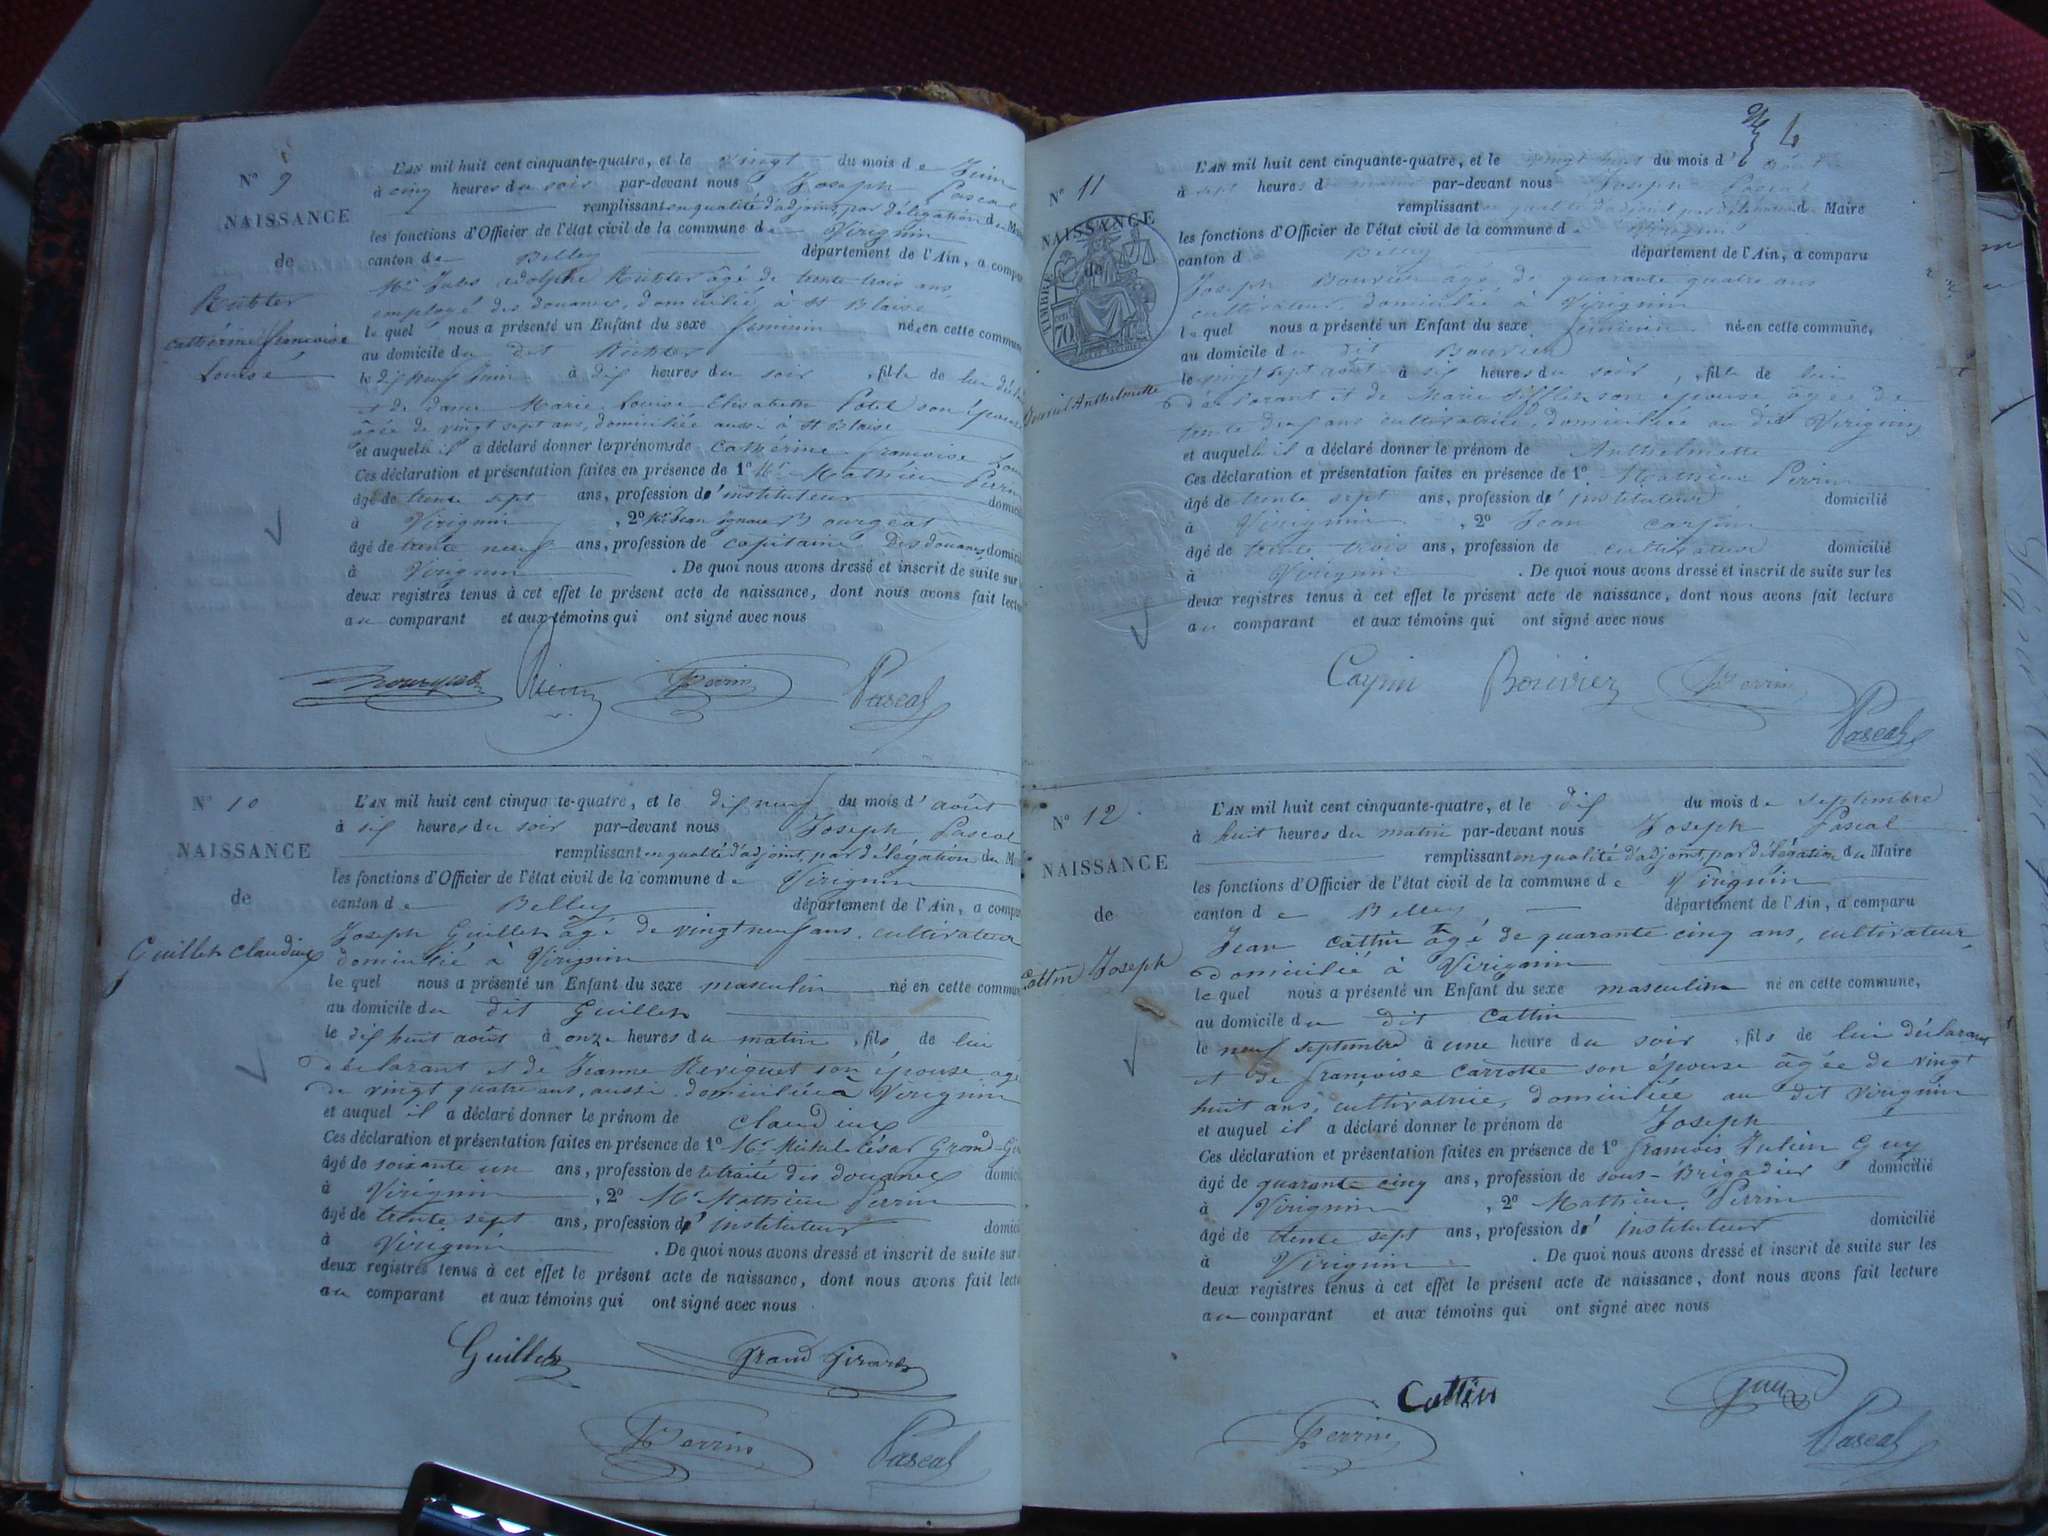 N° 9
NAISSANCE
de
Rubler
Cathérine françoise
Louise
L'AN mil huit cent cinquante-quatre, et le vingt du mois de Juin
à cinq heures du soir par-devant nous Joseph Pascal
remplissant en qualité d'adjoint, par délégation du
les fonctions d'Officier de l'état civil de la commune de Virignin
canton de Belley département de l'Ain, a compa
Mr Jules adolphe Rubler âgé de trente trois ans
employé des douanes, domicilié à St Blaise
lequel nous a présenté un Enfant du sexe feminin née en cette commun
au domicile du dit Rubler
le dix neuf Juin à dix heures du soir, fille de lui
et de dame Marie Louise Elisabeth son épouse
âgée de vingt sept ans, domiciliée aussi à St Blaise
et auquelle il a déclaré donner les prénoms de Cathérine françoise
Ces déclaration et présentation faites en présence de 1° Mr Mathieu Perrin
âgé de trente sept ans, profession d'instituteur domici
à Virignin, 2° Mr Jean Bourgeat
âgé de trente neuf ans, profession de capitaine des douanes domici
à Virignin. De quoi nous avons dressé et inscrit de suite sur
deux registres tenus à cet effet le présent acte de naissance, dont nous avons fait lectu
au comparant et aux témoins qui ont signé avec nous
Perrin Pascal
N° 10
NAISSANCE
de
Guillet Claudius
L'AN mil huit cent cinqua te-quatre, et le dix neuf du mois d'août
à six heures du soir par-devant nous Joseph Pascal
remplissant en qualité d'adjoint, par délégation du M
les fonctions d'Officier de l'état civil de la commune de Virignin
canton de Belley département de l'Ain, a compar
Joseph Guillet âgé de vingt neuf ans, cultivateur
domicilié à Virignin
lequel nous a présenté un Enfant du sexe masculin né en cette commun
au domicile du dit Guillet
le dix huit août à onze heures du matin, fils de lui
déclarant et de Jeanne Reriguet son épouse âgé
de vingt quatre ans, aussi domiciliée à Virignin
et auquel il a déclaré donner le prénom de Claudius
Ces déclaration et présentation faites en présence de 1° Mr Michel César Grand-Gi
âgé de soixante un ans, profession de retraité des douanes domici
à Virignin, 2° Mr Mathieu Perrin
âgé de trente sept ans, profession d'instituteur domici
à Virignin. De quoi nous avons dressé et inscrit de suite sur
deux registres tenus à cet effet le présent acte de naissance, dont nous avons fait lectu
au comparant et aux témoins qui ont signé avec nous
Guillet Grand Girard
Perrin Pascal
N° 11
NAISSANCE
de
TIMBRE
70
Anthelmette
L'AN mil huit cent cinquante-quatre, et le vingt huit du mois d'août
à heures du par-devant nous Joseph Pascal
remplissant en qualité d'adjoint par délégation du Maire
les fonctions d'Officier de l'état civil de la commune de Virignin
canton d Belley département de l'Ain, a comparu
Joseph Bouvier agé de quarante quatre ans
cultivateur, domicilié à Virignin
lequel nous a présenté un Enfant du sexe feminin née en cette commune,
au domicile du dit Bouvier
le vingt sept août à six heures du soir, fille de lui
déclarant et de Marie son épouse, âgée de
trente ans cultivatrice, domiciliée au dit Virignin
et auquelle il a déclaré donner le prénom de Anthelmette
Ces déclaration et présentation faites en présence de 1° Mathieu Perrin
âgé de trente sept ans, profession d'instituteur domicilié
à Virignin, 2° Jean
âgé de trente trois ans, profession de cultivateur domicilié
à Virignin. De quoi nous avons dressé et inscrit de suite sur les
deux registres tenus à cet effet le présent acte de naissance, dont nous avons fait lecture
au comparant et aux témoins qui ont signé avec nous
Bouvier Perrin
Pascal
N° 12
NAISSANCE
de
Cattin Joseph
L'AN mil huit cent cinquante-quatre, et le dix du mois de septembre
à huit heures du matin par-devant nous Joseph Pascal
remplissant en qualité d'adjoint, par délégation du Maire
les fonctions d'Officier de l'état civil de la commune de Virignin
canton de Belley département de l'Ain, a comparu
Jean Cattin âgé de quarante cinq ans, cultivateur,
domicilié à Virignin
lequel nous a présenté un Enfant du sexe masculin né en cette commune,
au domicile du dit Cattin
le neuf septembre à une heure du soir, fils de lui déclarant
et de françoise Carrotte son épouse âgée de vingt
huit ans, cultivatrice, domiciliée au dit Virignin
et auquel il a déclaré donner le prénom de Joseph
Ces déclaration et présentation faites en présence de 1° françois Julien Guy
âgé de quarante cinq ans, profession de sous-Brigadier domicilié
à Virignin, 2° Mathieu Perrin
âgé de trente sept ans, profession d'instituteur domicilié
à Virignin. De quoi nous avons dressé et inscrit de suite sur les
deux registres tenus à cet effet le présent acte de naissance, dont nous avons fait lecture
au comparant et aux témoins qui ont signé avec nous
Cattin Guy
Perrin Pascal